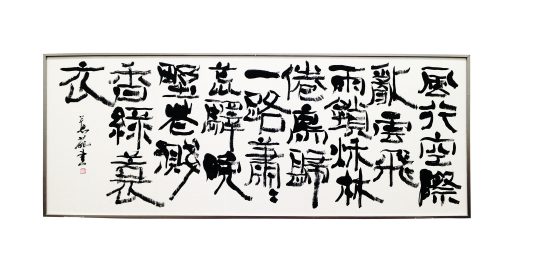 風行空際
亂雲飛
雨鎖秋林
倦鳥歸
一路蕭〻
荒驛晚
墅巷殘
香綠蓑
衣
書